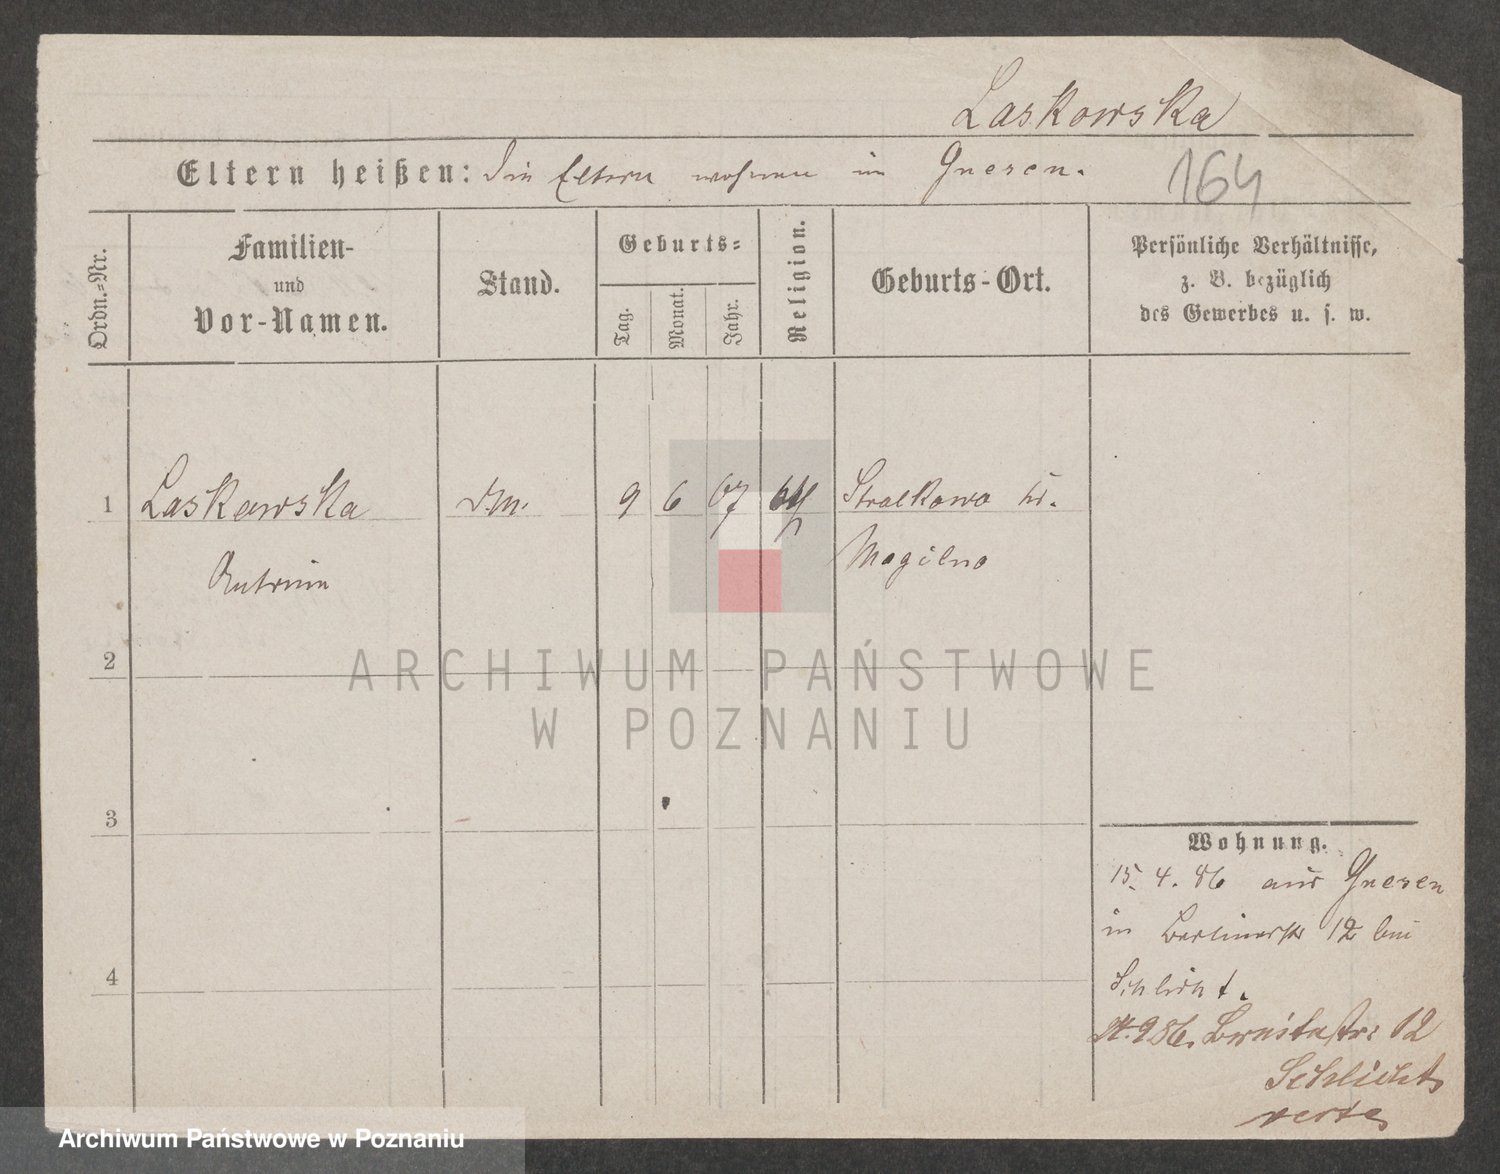 Laskowska
Eltern heißen: Die Eltern wohnen in Gnesen.
164
Ordn.=Nr.
Familien-
und
Vor-Namen.
Stand.
Geburts=
Tag.
Monat.
Jahr.
Religion.
Geburts-Ort.
Persönliche Verhältnisse,
z. B. bezüglich
des Gewerbes u. s. w.
1 Laskowska D.M. 9 6 67 kth Stralkowo Kr.
Mogilno
2
3
4
Wohnung.
15. 4. 86 aus Gnesen
in Berlinerstr 12 bei
Schlicht.
Breitestr: 12
Schlicht
verte
ARCHIWUM PAŃSTWOWE
W POZNANIU
Archiwum Państwowe w Poznaniu